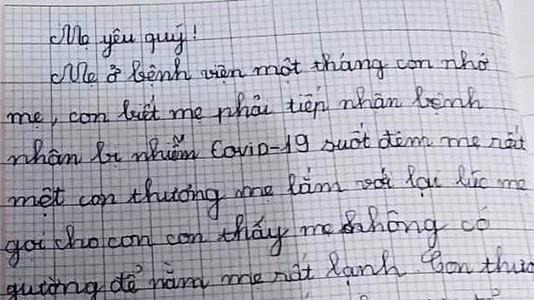 Mẹ yêu quý!
Mẹ ở bệnh viện một tháng con nhớ
mẹ, con biết mẹ phải tiếp nhận bệnh
nhân bị nhiễm Covid-19 suốt đêm mẹ rất
mệt con thương mẹ lắm với lại lúc mẹ
gọi cho con con thấy mẹ không có
giường để nằm mẹ rất lạnh. Con